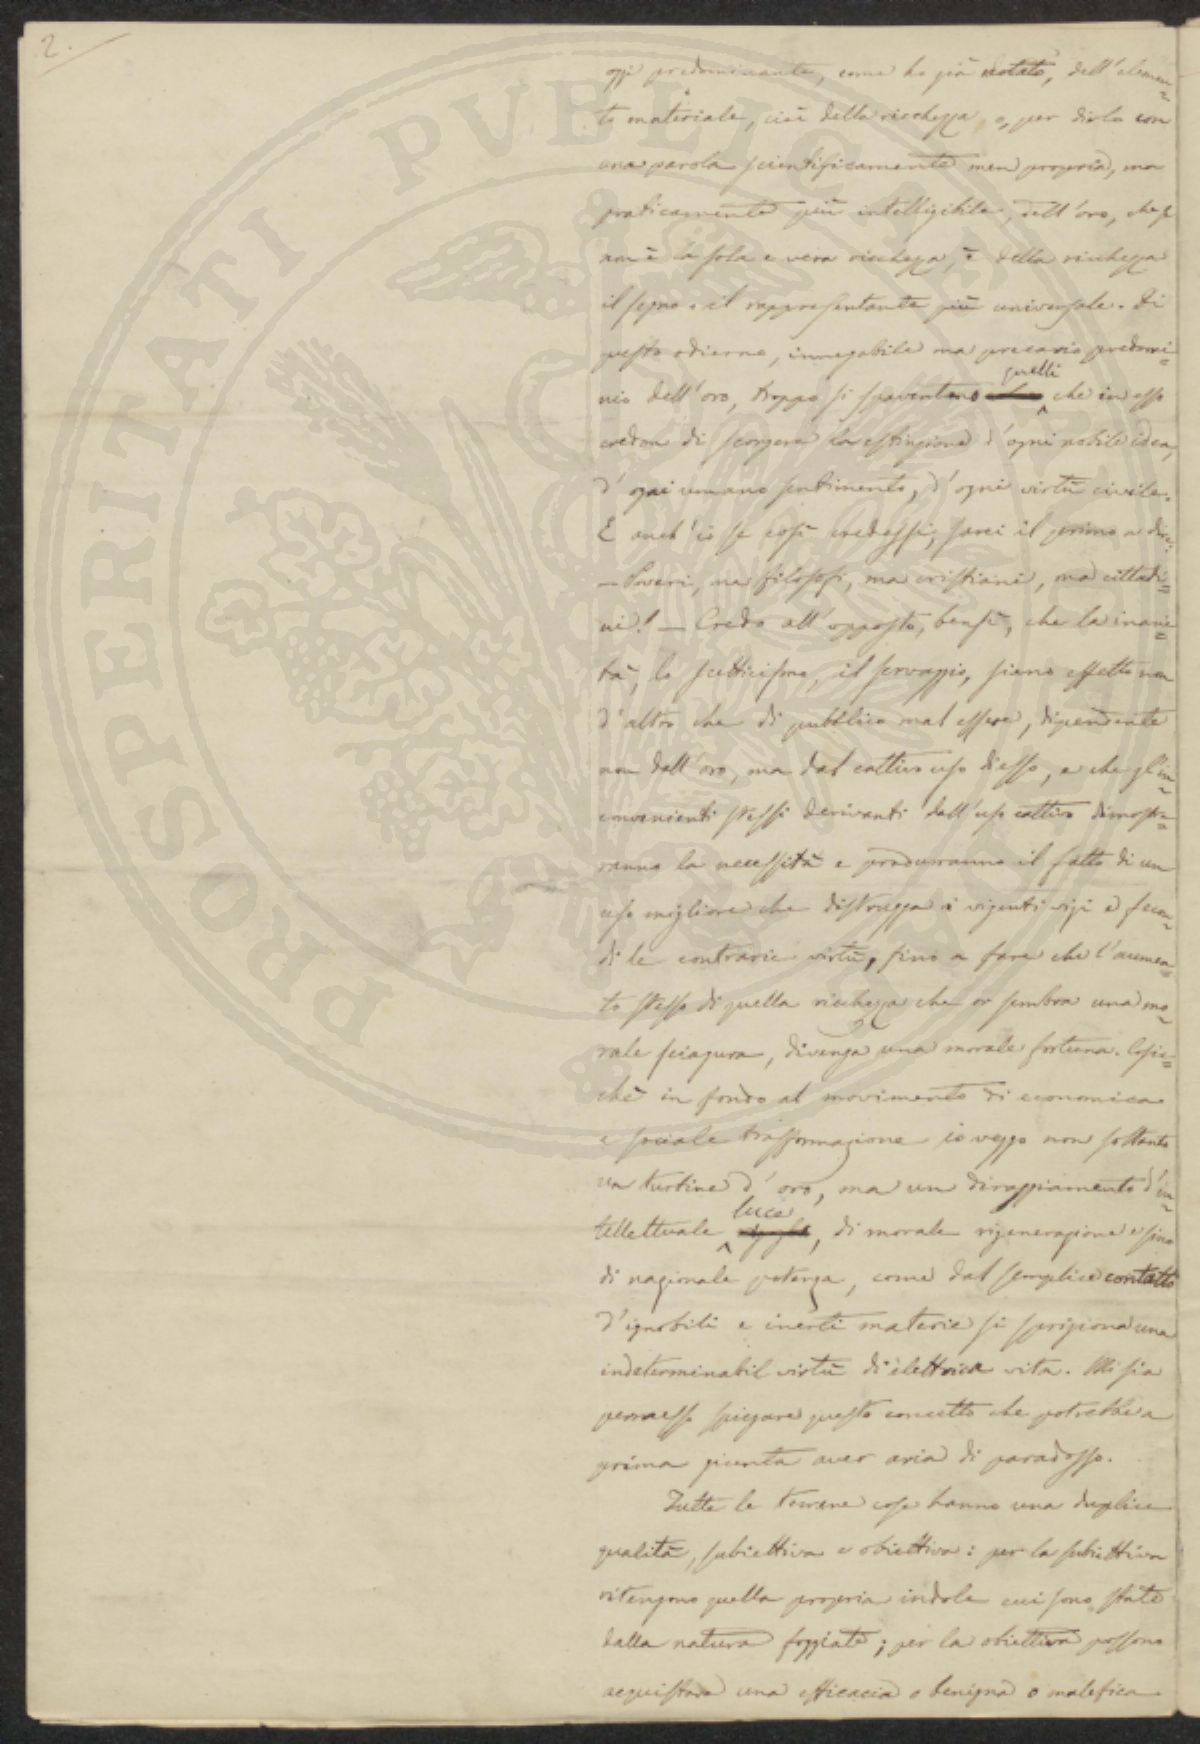 2.
oggi predominante, come ho già notato, dell'elemen=
to materiale, cioè della ricchezza, o, per dirla con
una parola scientificamente men propria, ma
praticamente più intelligibile, dell'oro, che se
non è la sola e vera ricchezza, è della ricchezza
il segno e il rappresentante più universale. Di
questo odierno, innegabile ma precario predomi=
nio dell'oro, troppo si spaventano quelli che in esso
credon di scorgere la estinzione d'ogni nobile idea,
d'ogni umano sentimento, d'ogni virtù civile.
E anch'io se così credessi, sarei il primo a dire:
— Poveri, ma filosofi, ma cristiani, ma cittadi=
ni! — Credo all'opposto, bensì, che la inani=
tà, lo scetticismo, il servaggio, sieno effetto non
d'altro che di pubblico mal essere, dipendente
non dall'oro, ma dal cattivo uso di esso, e che gl'in=
convenienti stessi derivanti dall'uso cattivo dimostre=
ranno la necessità e produrranno il fatto di un
uso migliore che distrugga i vigenti vizi e fecon=
di le contrarie virtù, fino a fare che l'aumen=
to stesso di quella ricchezza che or sembra una mo=
rale sciagura, divenga una morale fortuna. Cosic=
chè in fondo al movimento di economica
e sociale trasformazione io veggo non soltanto
un turbine d'oro, ma un diraggiamento d'in=
tellettuale luce, di morale rigenerazione e sino
di nazionale potenza, come dal semplice contatto
d'ignobili e inerti materie si sprigiona una
indeterminabil virtù di elettrica vita. Mi sia
permesso spiegare questo concetto che potrebbe a
prima giunta aver aria di paradosso.
Tutte le terrene cose hanno una duplice
qualità, subiettiva e obiettiva: per la subiettiva
ritengono quella propria indole cui sono state
dalla natura foggiate; per la obiettiva possono
acquistare una efficacia o benigna o malefica
PROSPERITATI PVBLICAE